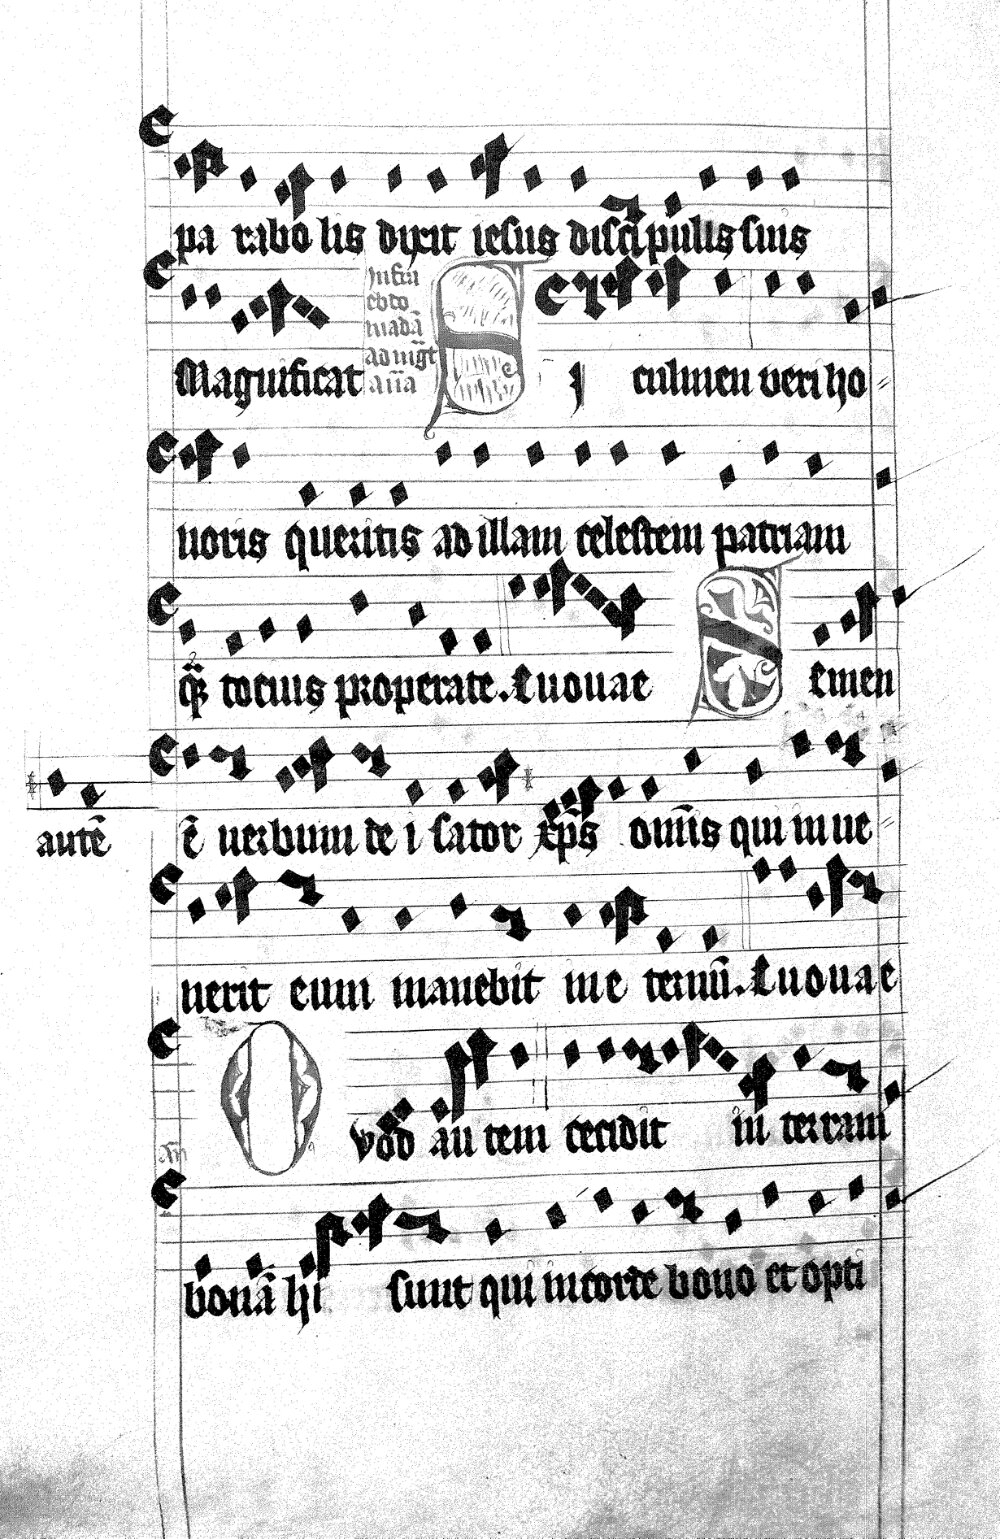 pa rabo lis dixit iesus discipulis suis
Magnificat
Infra
ebdo
madã
ad mgt
añã
S I culmen veri ho
noris queritis ad illam celestem patriam
q̃ȝ tocius properate. Euouae
S emen
autẽ
ẽ uerbum de i sator xp̃s omĩs qui inue
nerit eum manebit in e ternũ. Euouae
Q vod au tem cecidit in terram
bonã hi sunt qui in corde bono et opti